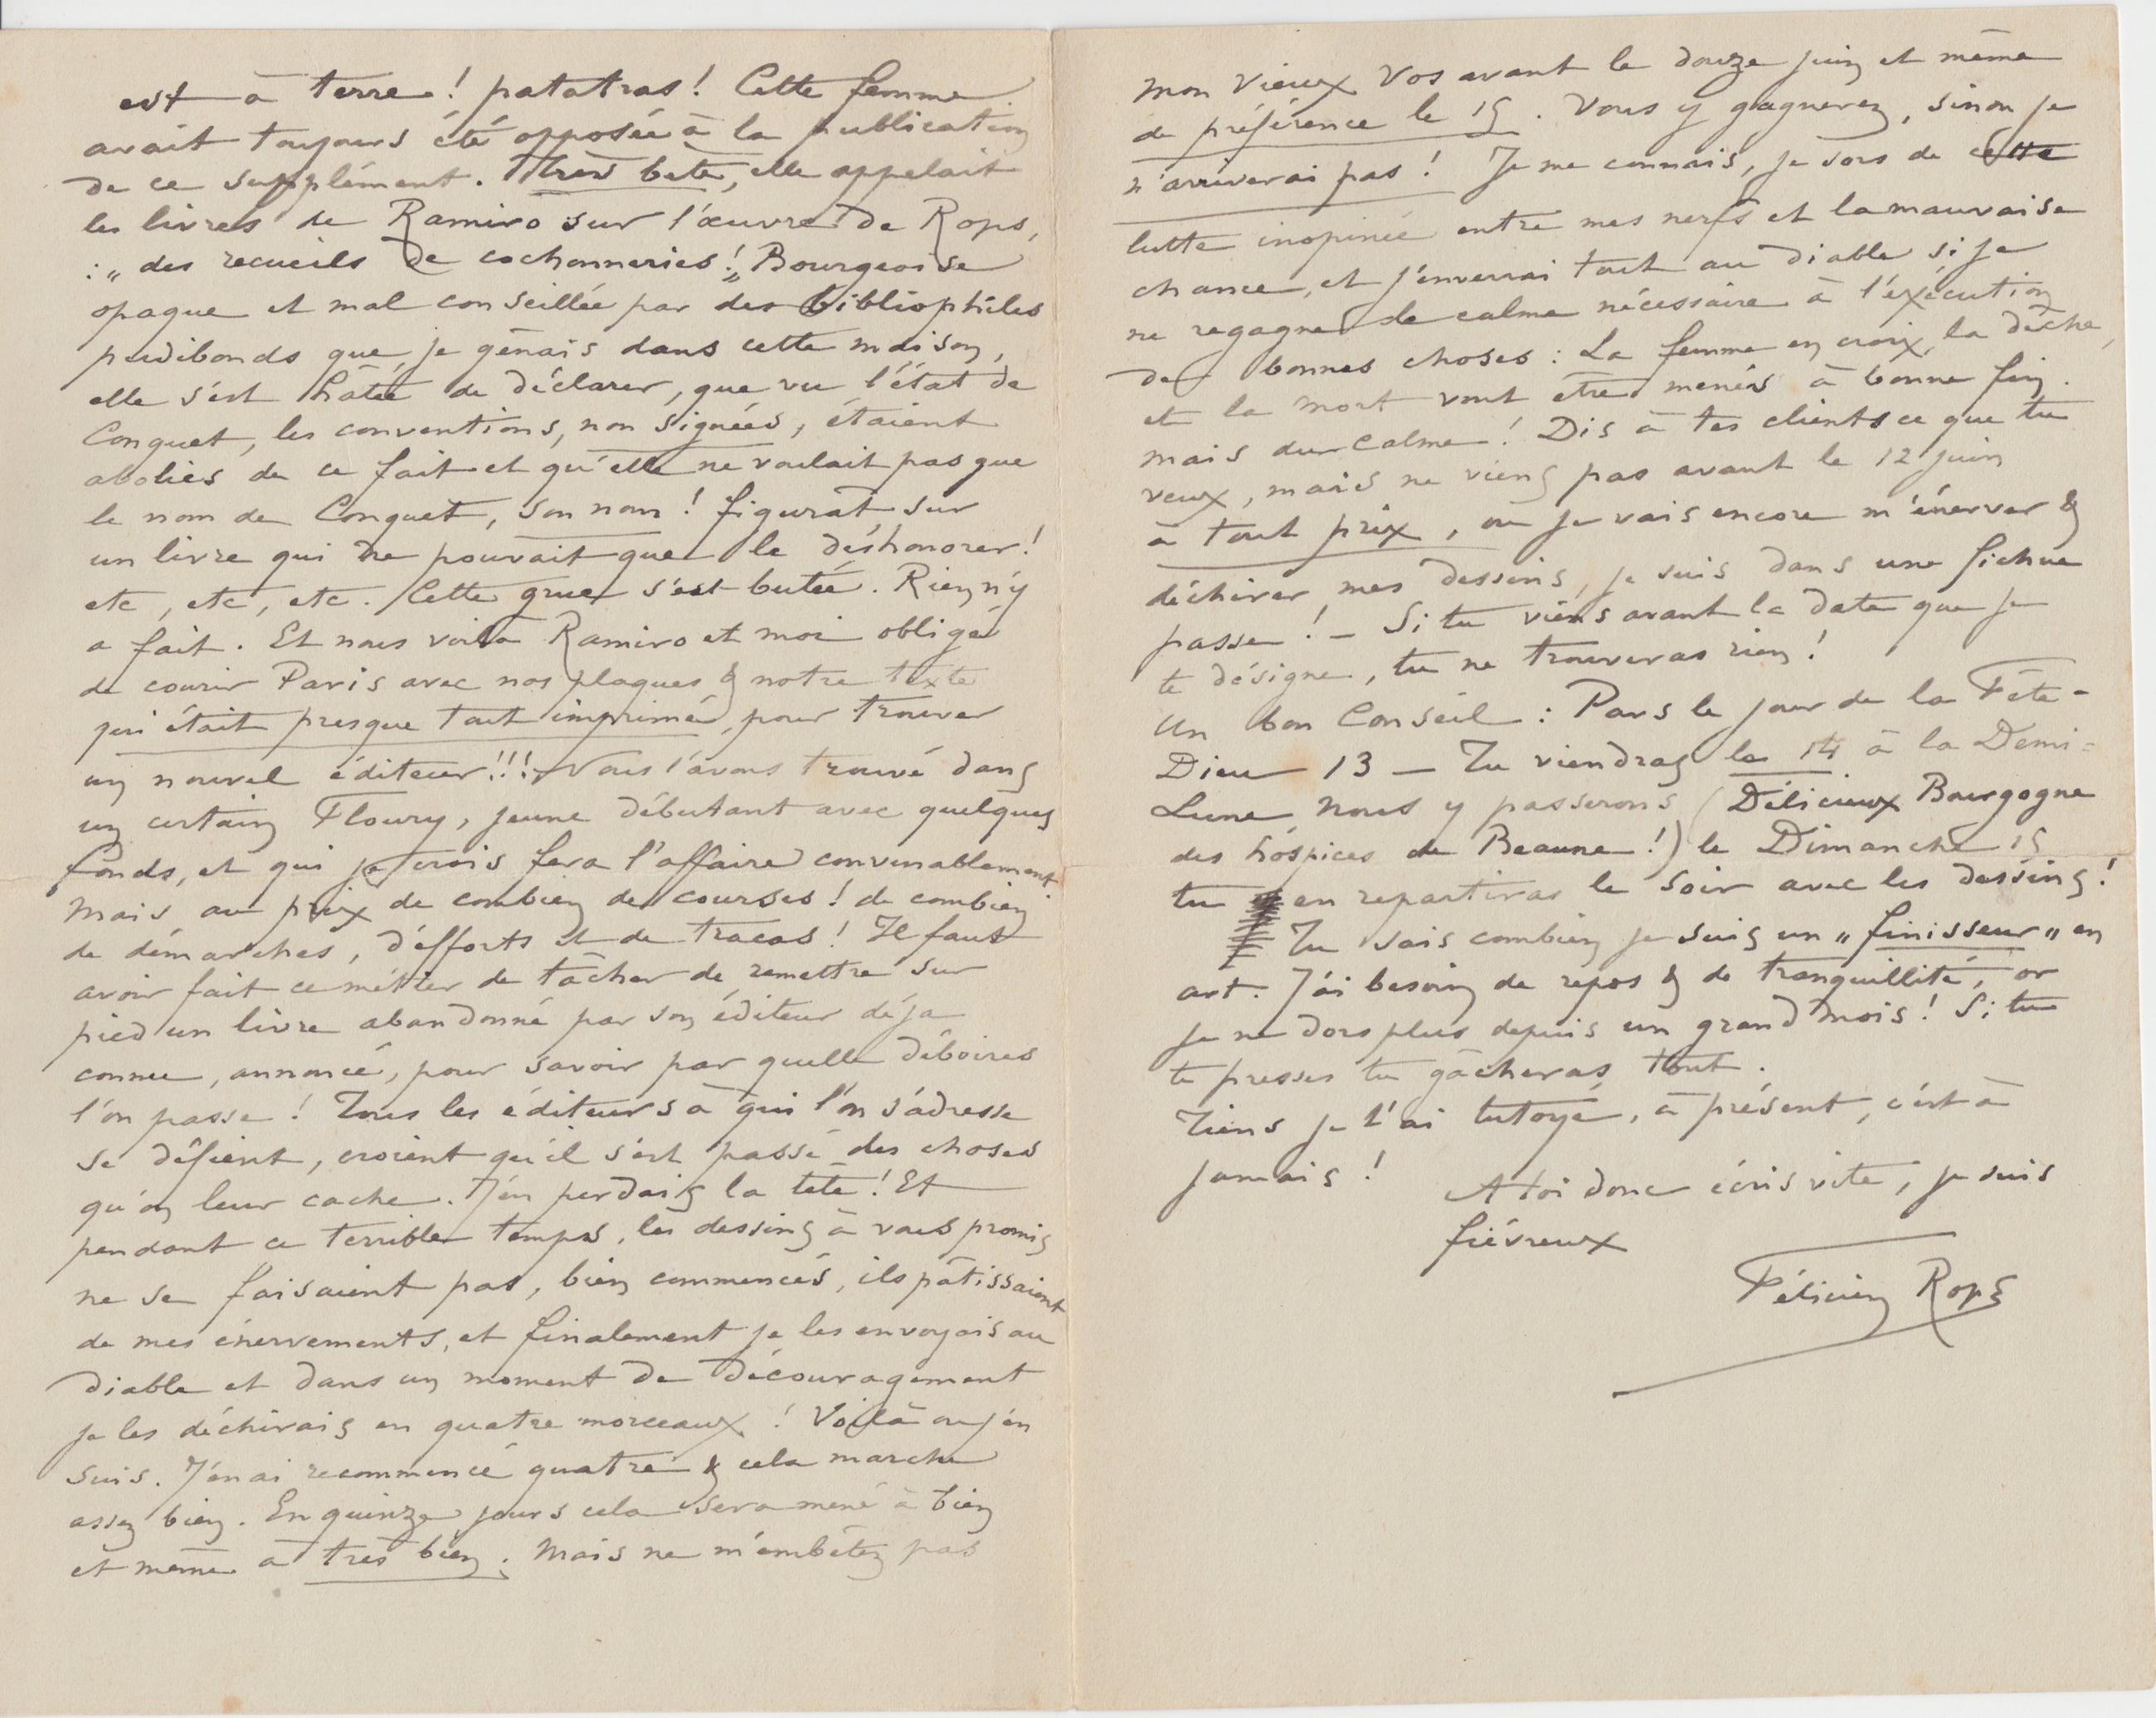 est à terre ! patatras ! Cette femme
avait toujours été opposée à la publication
de ce supplément. Très bête, elle appelait
les livres de Ramiro sur l'œuvre de Rops,
: „ des recueils de cochonneries !„ Bourgeoise
opaque et mal conseillée par des bibliophiles
pudibonds que je gênais dans cette maison,
elle s'est hâtée de déclarer, que vu l'état de
Conquet, les conventions, non signées, étaient
abolies de ce fait et qu'elle ne voulait pas que
le nom de Conquet, son nom ! figurat sur
un livre qui ne pouvait que le déshonorer !
etc, etc, etc. Cette grue s'est butée. Rien n'y
a fait. Et nous voilà Ramiro et moi obligé
de courir Paris avec nos plaques & notre texte
qui était presque tout imprimé, pour trouver
un nouvel éditeur !!! Nous l'avons trouvé dans
un certain Floury, jeune débutant avec quelques
fonds, et qui je crois fera l'affaire convenablement
mais au prix de combien de courses ! de combien
de démarches, d'efforts et de tracas ! Il faut
avoir fait ce métier de tâcher de remettre sur
pied un livre abandonné par son éditeur déja
connu, annoncé, pour savoir par quelle déboires
l'on passe ! Tous les éditeurs à qui l'on s'adresse
se défient, croient qu'il s'est passé des choses
qu'on leur cache. J'en perdais la tête ! Et
pendant ce terrible temps, les dessins à vous promis
ne se faisaient pas, bien commencés, ils pâtissaient
de mes énervements, et finalement je les envoyais au
diable et dans un moment de découragement
je les déchirais en quatre morceaux ! Voilà où j'en
suis. J'en ai recommencé quatre & cela marche
assez bien. En quinze jours cela sera mené à bien
et même à très bien. Mais ne m'embêtez pas
mon vieux Vos avant le douze juin et même
de préférence le 15. Vous y gagnerez, sinon je
n'arriverai pas ! Je me connais, je sors de cette
lutte inopinée entre mes nerfs et la mauvaise
chance, et j'enverrai tout au diable si je
ne regagne le calme nécessaire à l'exécution
de bonnes choses : La femme en croix, la dèche,
et la mort vont être menés à bonne fin.
mais du calme ! Dis à tes clients ce que tu
veux, mais ne viens pas avant le 12 juin
à tout prix, ou je vais encore m'énerver &
déchirer mes dessins, je suis dans une fichue
passe ! – Si tu viens avant la date que je
te désigne, tu ne trouveras rien !
Un bon Conseil : Pars le jour de la Fête-
Dieu 13 — Tu viendras le 14 à la Demi=
Lune, nous y passerons (Délicieux Bourgogne
des hospices de Beaune !) le Dimanche 15
tu en repartiras le soir avec les dessins !
Tu sais combien je suis un „ finisseur „ en
art. J'ai besoin de repos & de tranquillité, or
je ne dors plus depuis un grand mois ! Si tu
te presses tu gâcheras tout.
Tiens je t'ai tutoyé, à présent, c'est à
jamais !
A toi donc écris vite, je suis
fiévreux
Félicien Rops